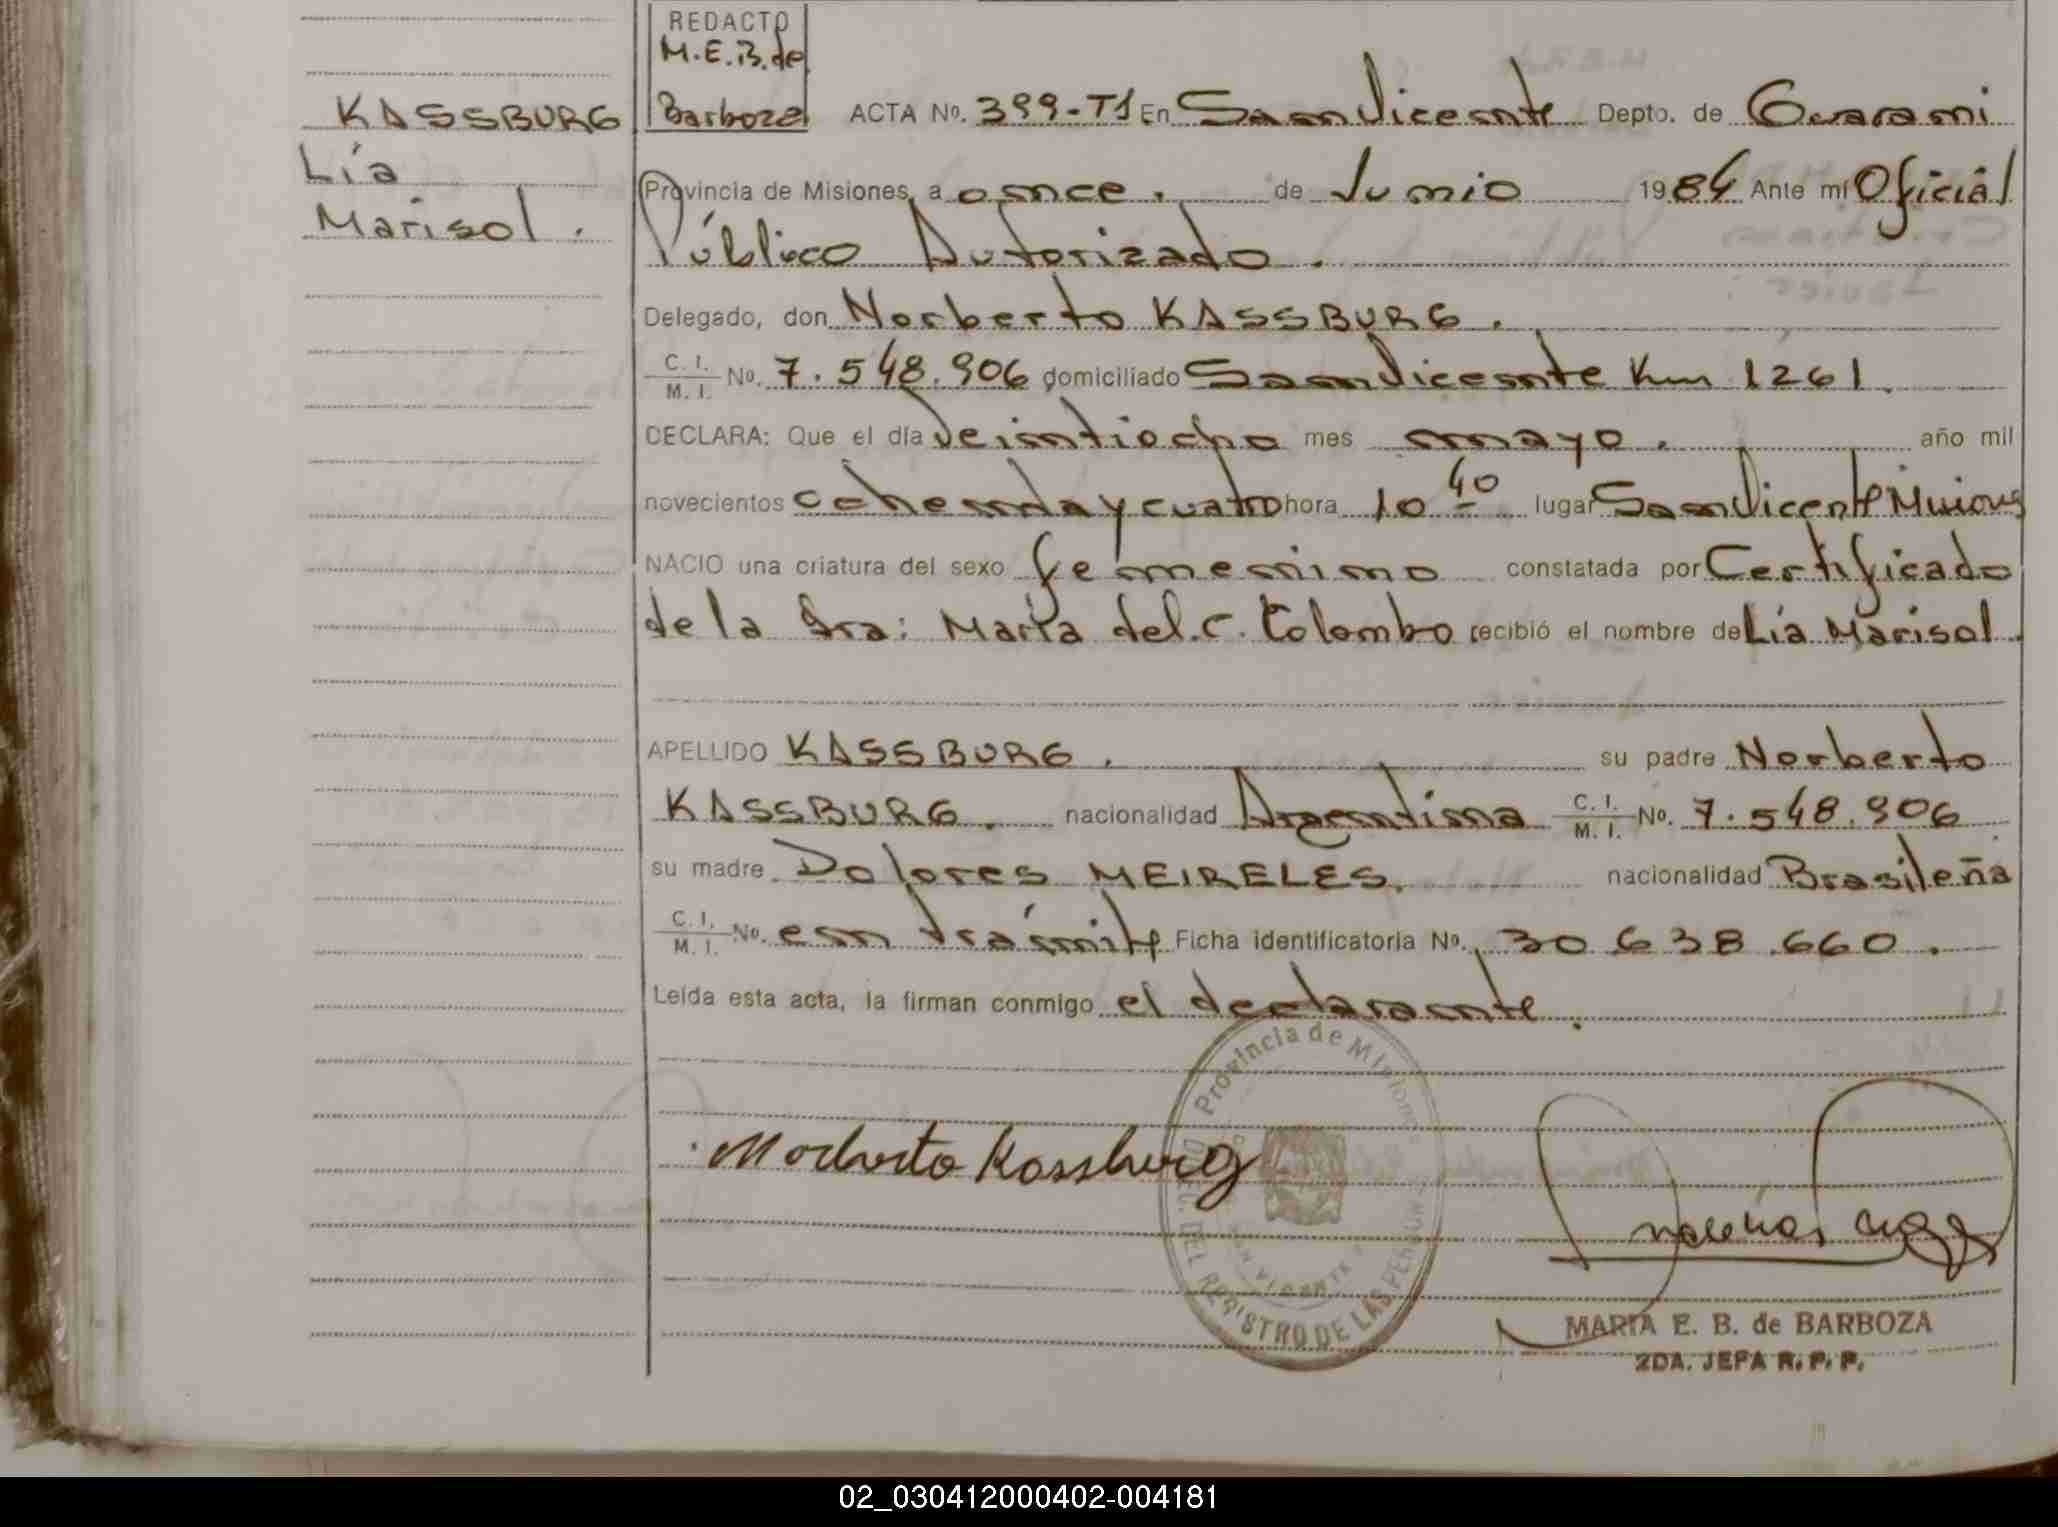 REDACTO
M.E.B. de
Barboza
KASSBURG
Lía
Marisol.
ACTA Nº. 399-T1 En San Vicente Depto. de Guarani
Provincia de Misiones, a once. de Junio 1984 Ante mí Oficial
Público Autorizado.
Delegado, don Norberto KASSBURG.
C. I. / M. I. Nº. 7.548.906 domiciliado San Vicente Km 1261.
DECLARA: Que el día Veintiocho mes mayo. año mil
novecientos ochenta y cuatro hora 10 40 lugar San Vicente Misiones
NACIO una criatura del sexo femenino constatada por Certificado
de la Sra: Marta del.C. Colombo recibió el nombre de Lía Marisol.
APELLIDO KASSBURG. su padre Norberto
KASSBURG. nacionalidad Argentina C. I. / M. I. Nº. 7.548.906
su madre Dolores MEIRELES. nacionalidad Brasileña
C. I. / M. I. Nº. en trámite Ficha identificatoria Nº. 30 638.660.
Leída esta acta, la firman conmigo el declarante.
Provincia de Misiones
DEL REGISTRO DE LAS PERSON
SAN VICENTE
Norberto Kassburg
MARIA E. B. de BARBOZA
2DA. JEFA R. P. P.
02_030412000402-004181